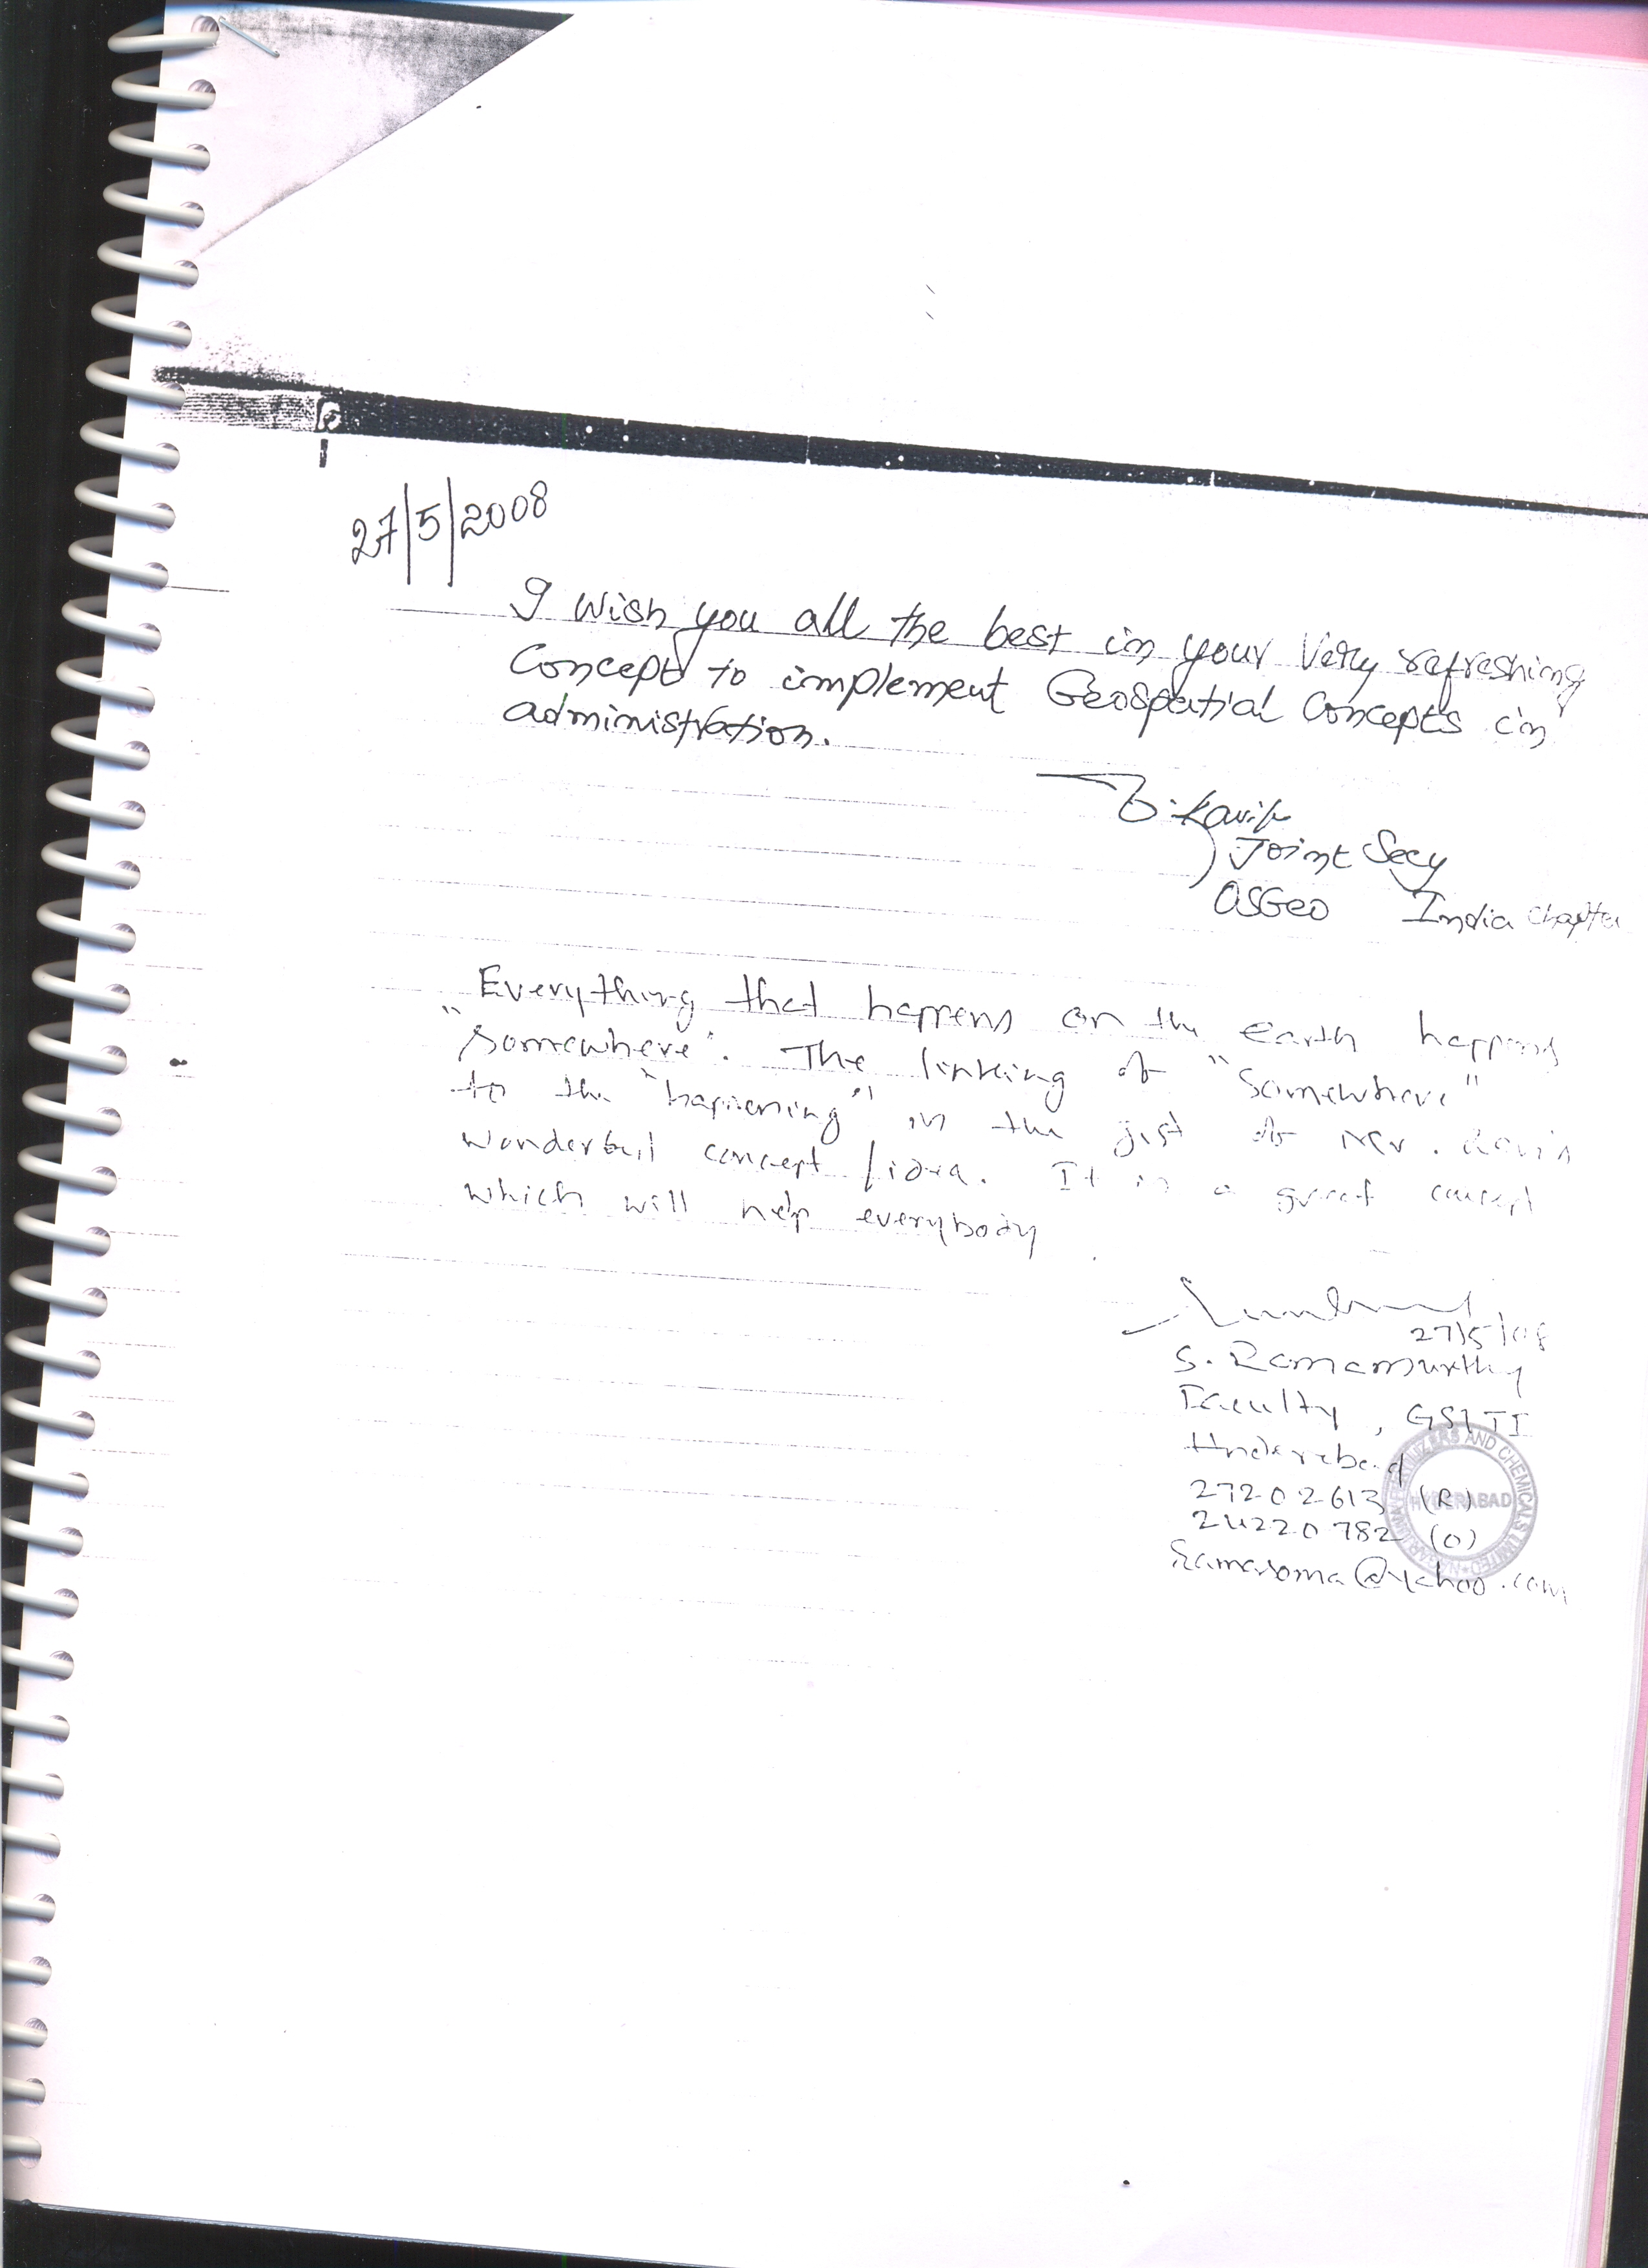 27/5/2008
I wish you all the best in your very refreshing
Concept to implement Geospatial Concepts in
administration.
Joint Secy
OSGeo India Chapter
Everything that happens on the Earth happens
"Somewhere". The linking of "Somewhere"
to the "happening" is the gist of Mr. Ravi's
wonderful concept / idea. It is a great concept
which will help everybody.
27/5/08
S. Ramamurthy
Faculty, GSITI
Hyderabad
27202613 (R)
24220782 (O)
ramasoma@yahoo.com
FERTILIZERS AND CHEMICALS LIMITED
HYDERABAD